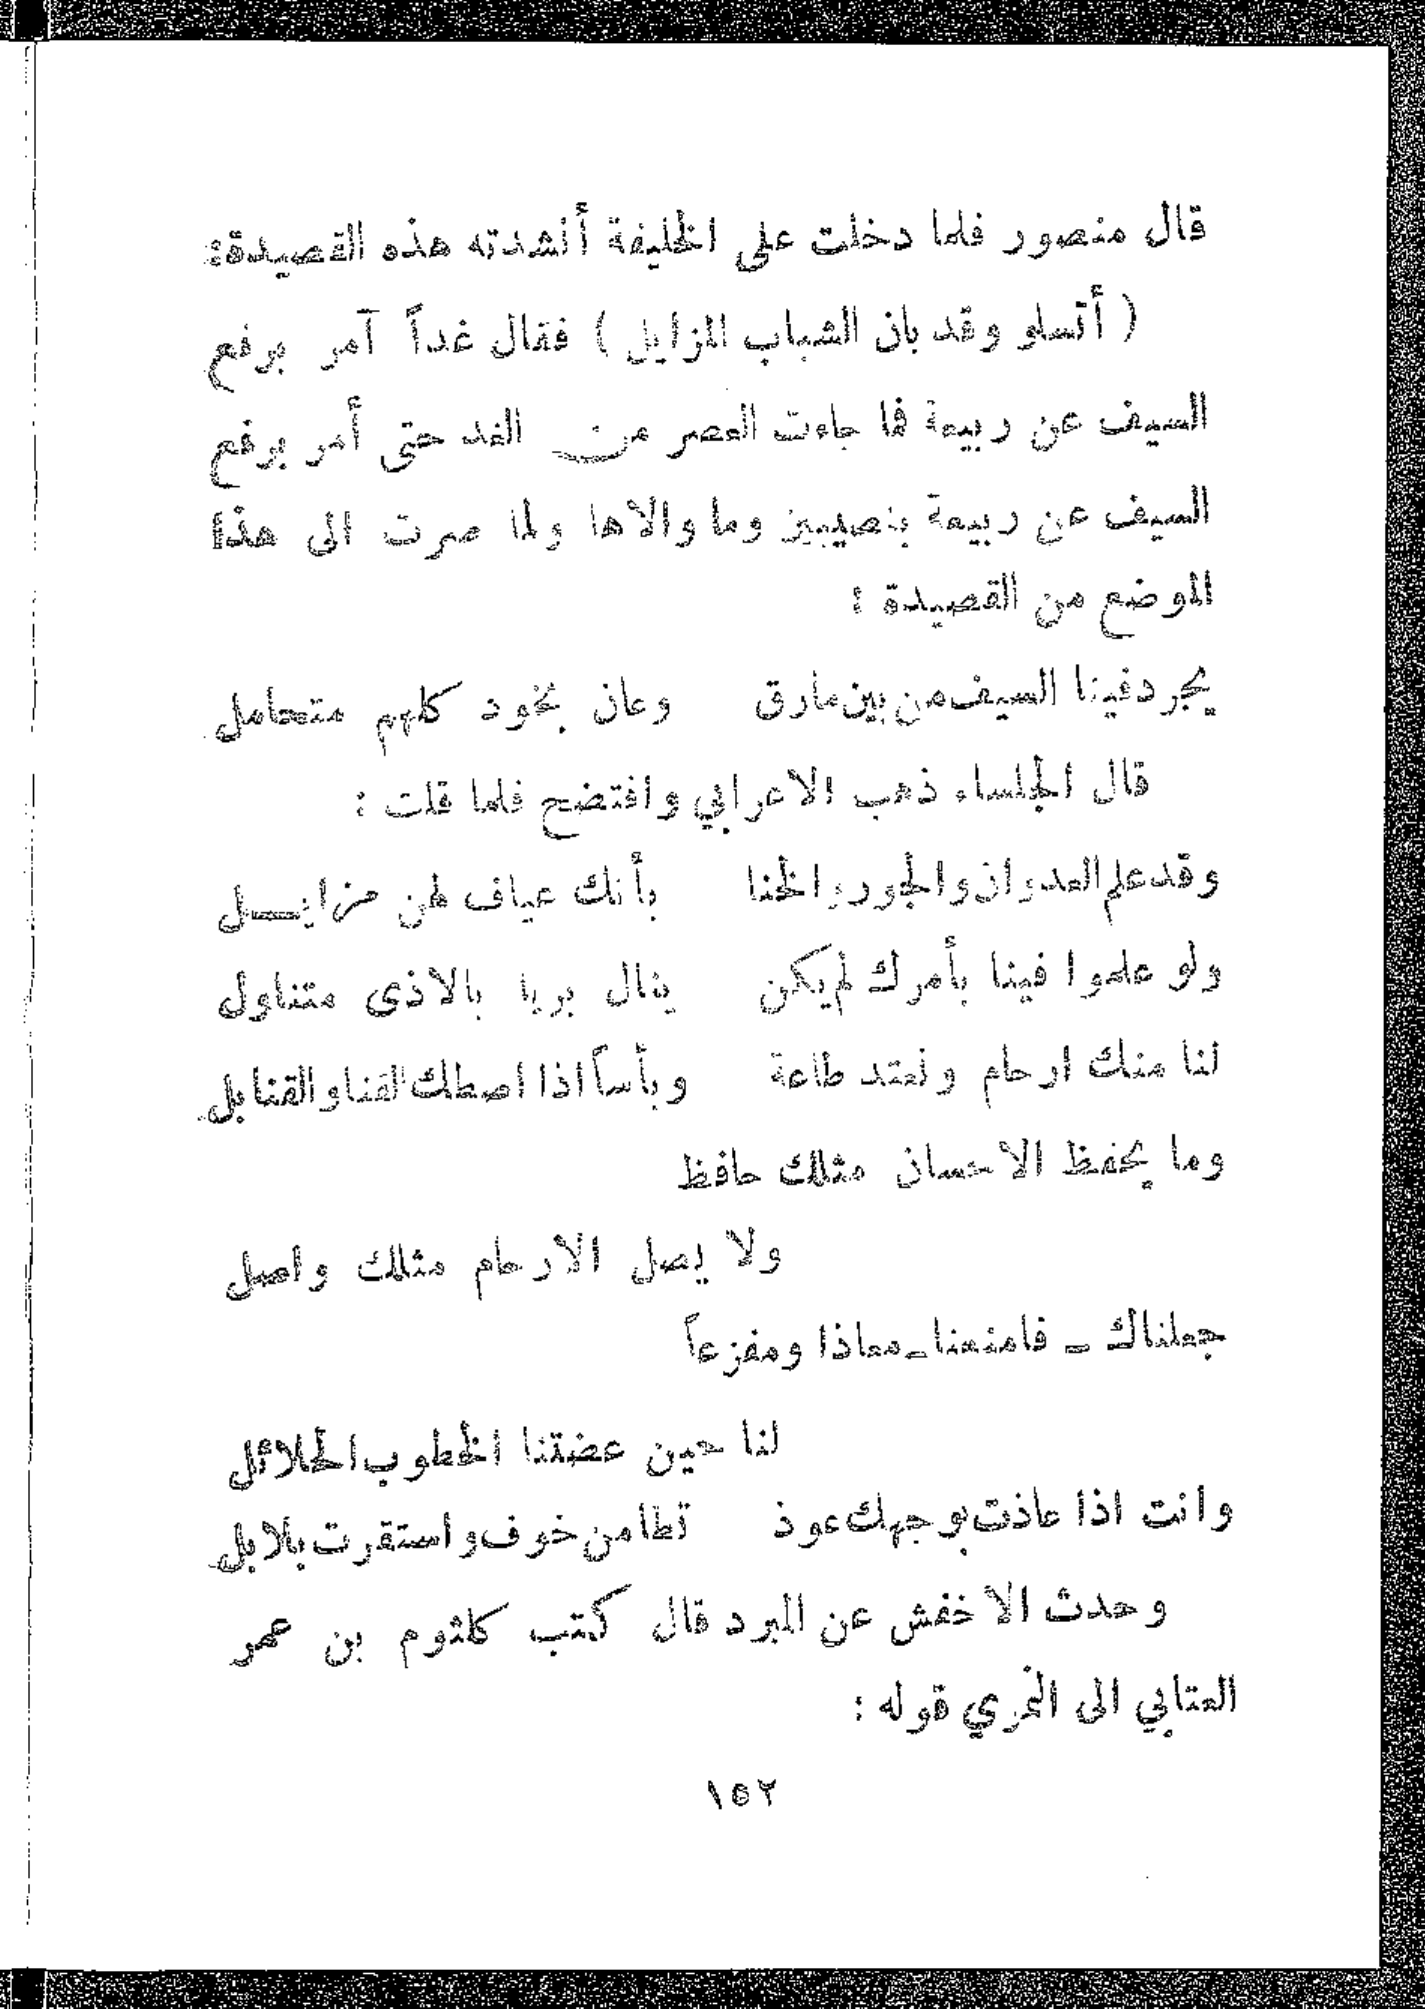 قال منصور فلما دخلت على الخليفة أنشدته هذه القصيدة:
( أتسلو وقد بان الشباب المزايل ) فقال غداً آمر برفع
السيف عن ربيعة فما جاءت العصر من الغد حتى أمر برفع
السيف عن ربيعة بنصيبين وما والاها ولما صرت الى هذا
الموضع من القصيدة :
يجرد فينا السيف من بين مارق وعان بخود كلهم متحامل
قال الجلساء ذهب الاعرابي وافتضح فلما قلت :
وقد علم العدوان والجور والخنا بأنك عياف لهن مزايـــل
ولو علموا فينا بأمرك لم يكن ينال بريا بالاذى متناول
لنا منك ارحام ونعتد طاعة وبأساً اذا اصطك القنا والقنابل
وما يحفظ الاحسان مثلك حافظ
ولا يصل الارحام مثلك واصل
جعلناك ـ فامنعنا ـ معاذا ومفزعاً
لنا حين عضتنا الخطوب الجلائل
وانت اذا عاذت بوجهك عوذ تطامن خوف واستقرت بلابل
وحدث الاخفش عن المبرد قال كتب كلثوم بن عمر
العتابي الى النمري قوله :
١٥٢